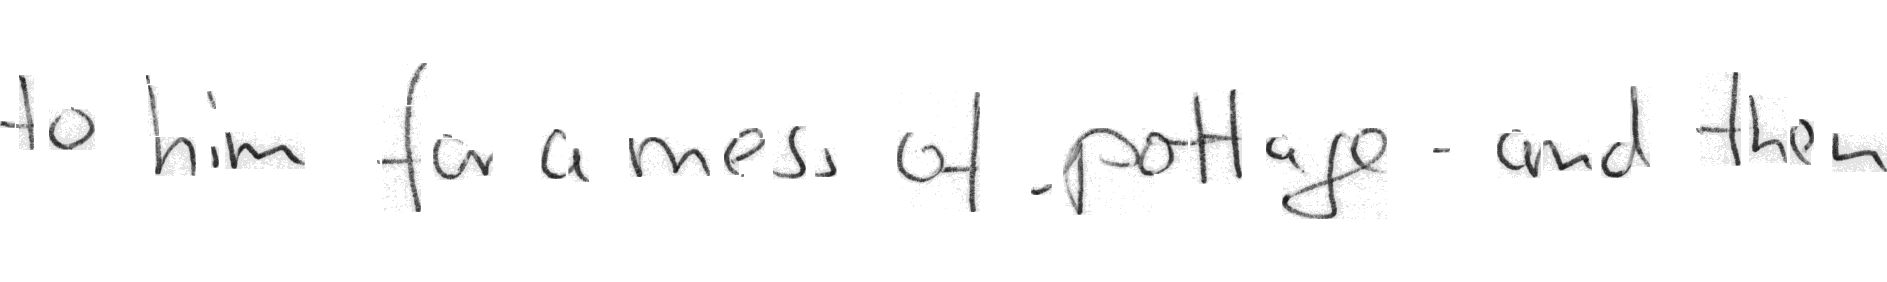 to him for a mess of pottage - and then